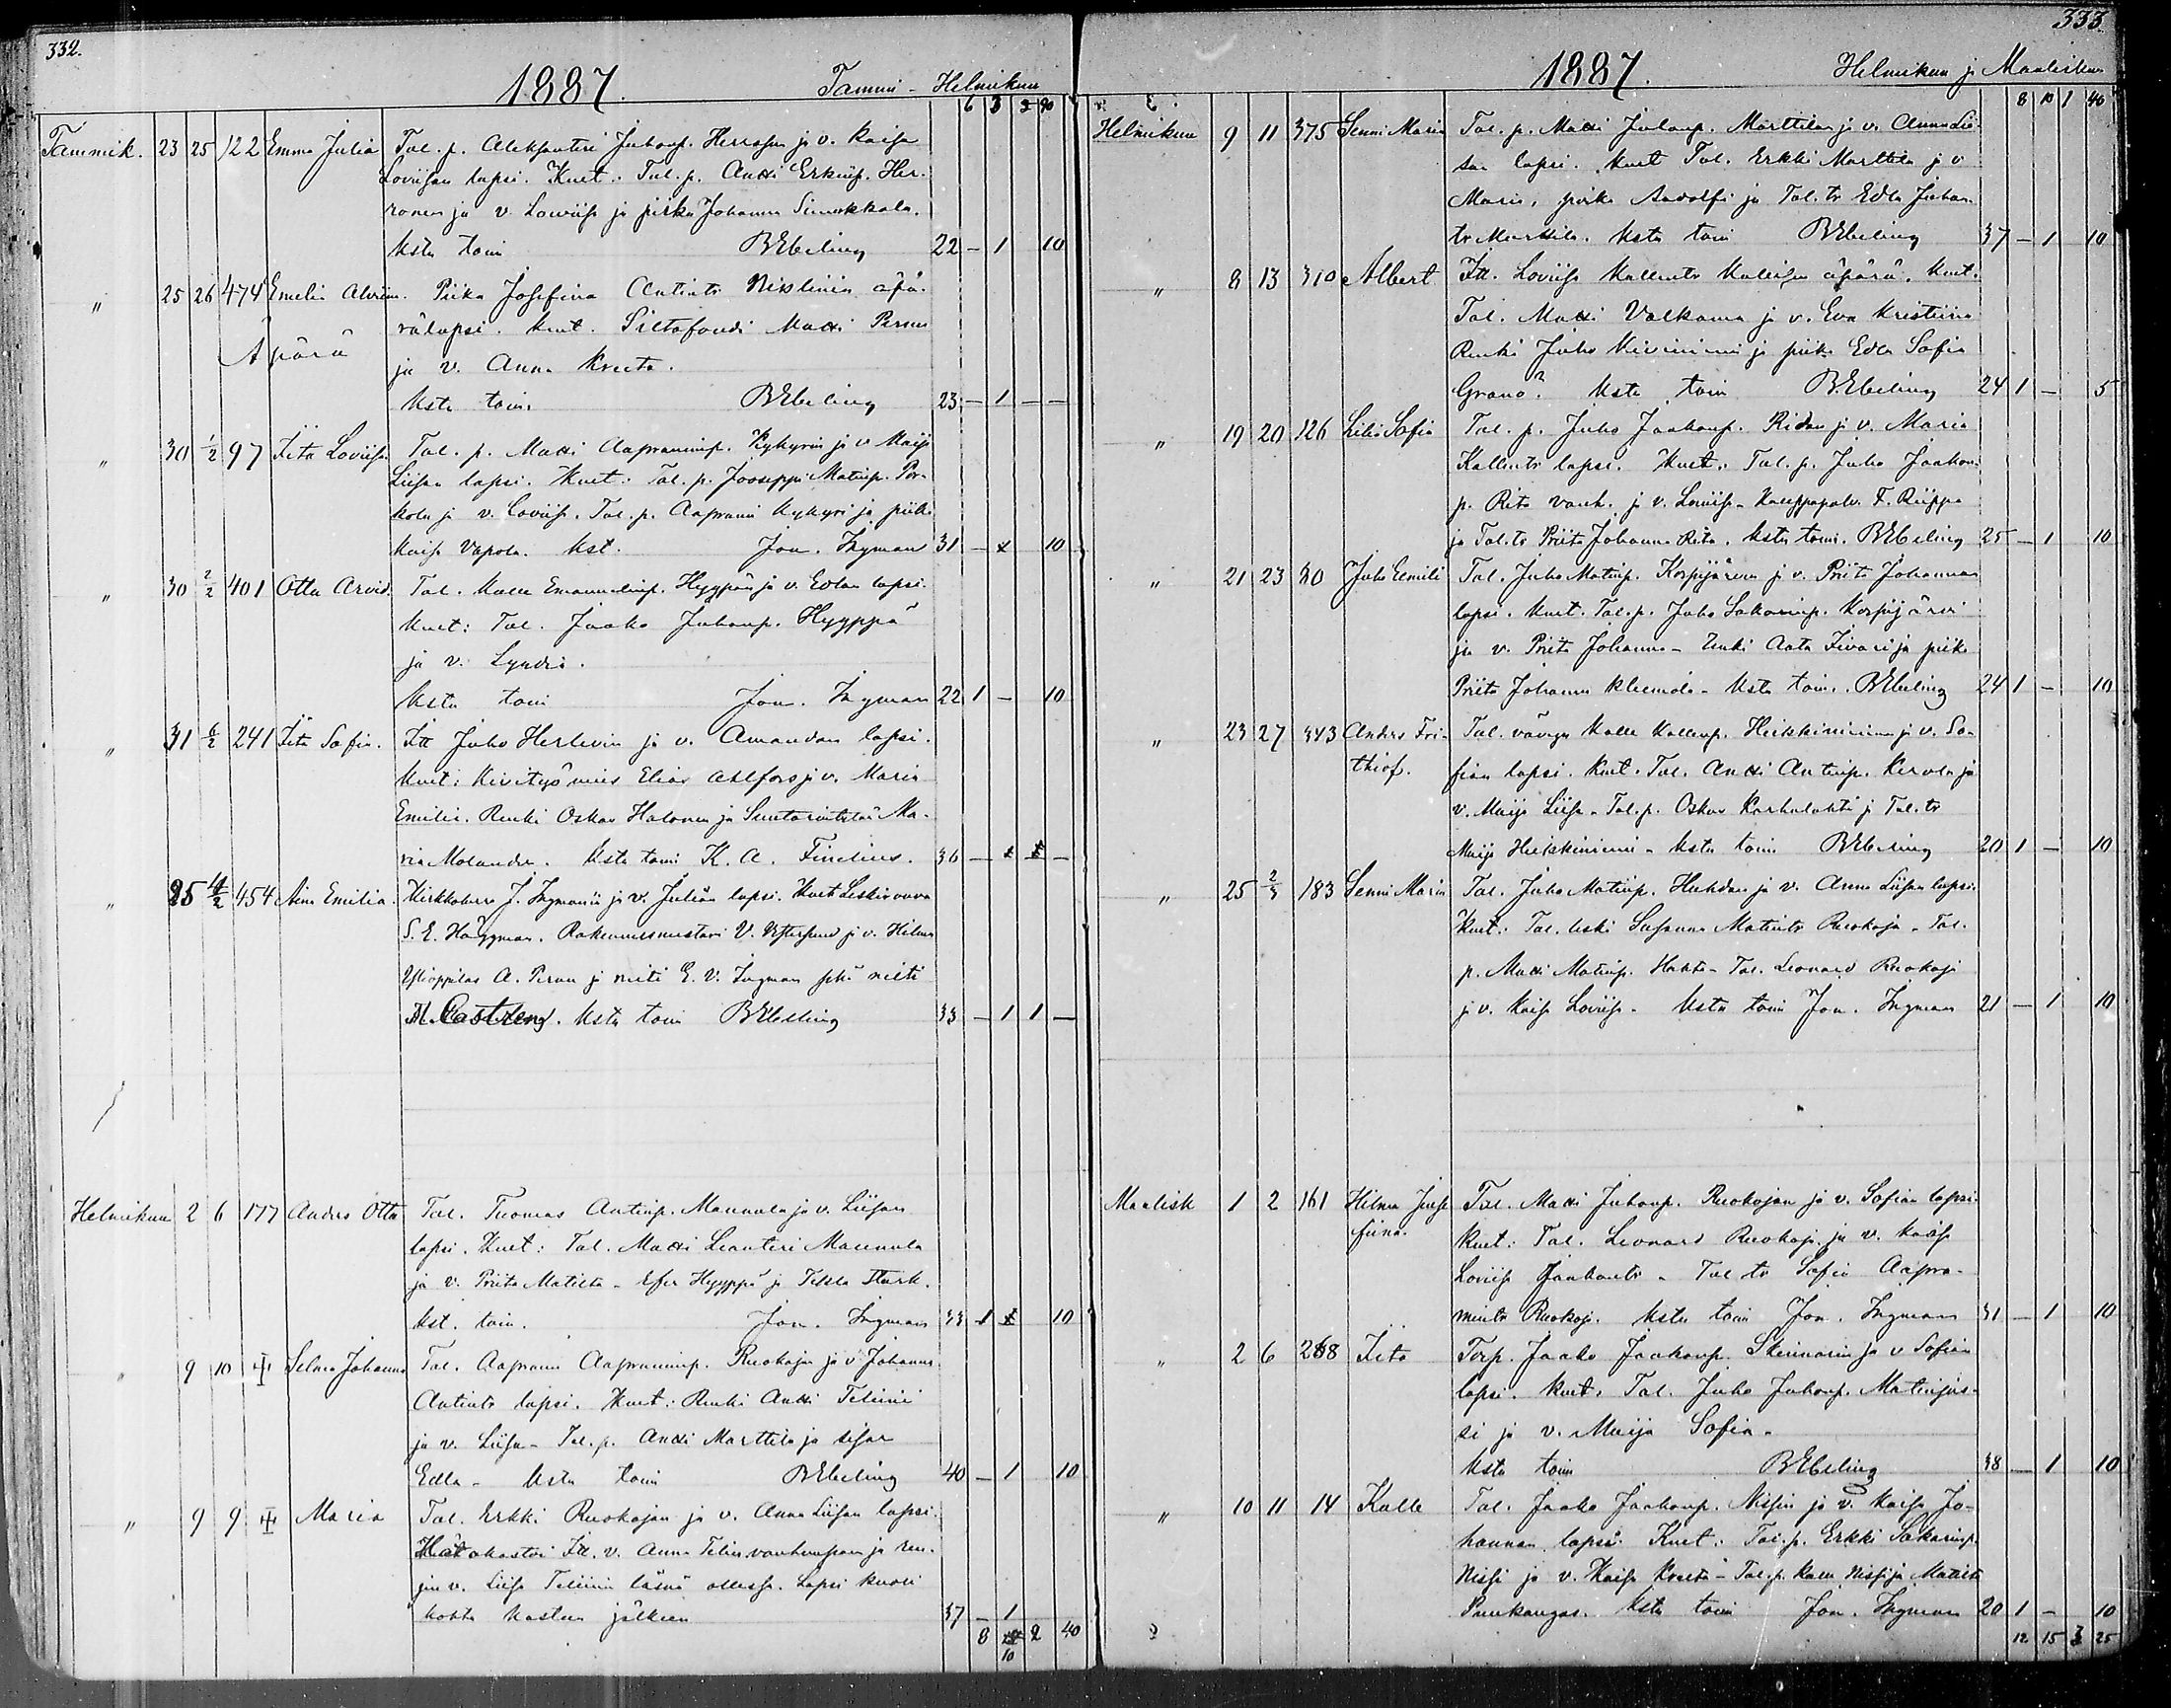 332.
1887. Tammi - Helmikuu
6 3 2 90
Tammik. 23 25 122 Emma Julia Tal. p. Aleksanteri Juhonp. Herrosen ja v. Kaisa
Loviisan lapsi. Kuet.: Tal. p. Antti Erkinp. Her-
ronen ja v. Loviisa ja piika Johanna
Ksta toim BEbeling 22 - 1 10
" 25 26 474 Emelia Piika Josefina Antintr Niklinin äpä-
rälapsi. Kuet. Matti
Äpärä
ja v. Anna Kreeta.
Ksta toim. BEbeling 23 - 1 - -
" 30 1/2 97 Iita Loviisa Tal. p. Matti Aapraminp. Kykyrin ja v. Maija
Liisan lapsi. Kuet: Tal. p. Jooseppi Matinp. Por-
kola ja v. Loviisa. Tal. p. Aaprami Kykyri ja piika
Kaisa Vapola. Kst. Jon. Ingman 31 - 10
" 30 2/2 401 Otto Arvid. Tal. Kalle Emanuelinp. Hyypän ja v. Edlan lapsi.
Kuet: Tal. Jaako Juhonp. Hyyppä
ja v. Lyydia.
Ksta toim Jon. Ingman 22 1 - 10
" 31 6/2 241 Iita Sofia. Itt Juho Herlevin ja v. Amandan lapsi.
Kuet: Kivityömies Elias Ahlfors ja v. Maria
Emilia. Renki Oskar Halonen ja Ma-
ria Molander. Ksta toimi K. A. Finelius. 36 -
" 25 4/2 454 Aina Emilia. Kirkkoherra J. Ingmanin ja v. Julian lapsi. Kuet Leskirouva
S. E. Häggman. Rakennusmestari V. ja v. Hilma
Ylioppilas A. ja neiti E. V. Ingman sekä neiti
Castren. Ksta toim BEbeling 33 - 1 1 -
Helmikuu 2 6 177 Anders Otto Tal. Tuomas Antinp. Mannula ja v. Liisan
lapsi. Kuet: Tal. Matti Leanteri Mannula
ja v. Priita Matilta - Efer Hyyppä ja Tekla
Kst. toim. Jon. Ingman 33 10
" 9 10 Selma Johanna Tal. Aaprami Aapraminp. Ruokojan ja v. Johanna
Antintr lapsi. Kuet: Renki Antti Teliini
ja v. Liisa - Tal. p. Antti Marttila ja sisar
Edla - Ksta toim BEbeling 40 - 1 10
" 9 9 Maria Tal. Erkki Ruokojan ja v. Anna Liisan lapsi.
Hätäkastoi Itt. v. Anna Telin vanhempain ja ren-
gin v. Liisa Teliinin läsnä ollessa. Lapsi kuoli
kohta kasteen jälkeen 37 - 1
8 10 2 40
333
1887. Helmikuu ja Maaliskuu
8 10 1 40
Helmikuu 9 11 375 Senni Maria Tal. p. Matti Juhonp. Marttilan ja v. Anna Lii-
san lapsi. Kuet Tal. Erkki Marttila ja v
Maria, poika Aadolfi ja Tal. tr Edla Juhon-
tr Marttila. Ksta toim BEbeling 37 - 1 10
" 8 13 310 Albert Itt. Loviisa Kallentr äpärä. Kuet.
Tal. Matti Valkama ja v. Eva Kristiina
Renki Juho Kiviniemi ja piika Edla Sofia
Granö. Ksta toim BEbeling 24 1 - 5
" 19 20 126 Liki Sofia Tal. p. Juho Jaakonp. Ridan ja v. Maria
Kallentr lapsi. Kuet: Tal. p. Juho Jaakon-
p. Rita vanh. ja v. Loviisa - Kauppapalv. F. Riippa
ja Tal. tr Priita Johanna Rita. Ksta toimi. BEbeling 25 - 1 10
" 21 23 80 Juho Eemili Tal. Juho Matinp. Korpijärven ja v. Priita Johannan
lapsi. Kuet. Tal. p. Juho Sakarinp. Korpijärvi
ja v. Priita Johanna - Renki Aata Iivari ja piika
Priita Johanna Klemola - Ksta toim. BEbeling 24 1 - 10
" 23 27 343 Anders Fri- Tal. vävyn Kalle Kallenp. Heikkiniemen ja v. So-
thiof. fian lapsi. Kuet. Tal. Antti Antinp. Kerola ja
v. Maija Liisa - Tal. p. Oskar Karhulahti ja Tal. tr
Maija Heikkiniemi - Ksta toim BEbeling 20 1 - 10
" 25 2/3 183 Senni Maria Tal. Juho Matinp. Huhdan ja v. Anna Liisan lapsi.
Kuet.: Tal. leski Susanna Matintr Ruokoja - Tal.
p. Matti Matinp. Huhta - Tal. Leonard Ruokoja
ja v. Kaisa Loviisa - Ksta toim Jon. Ingman 21 - 1 10
Maalisk 1 2 161 Hilma Jose- Tal. Matti Juhonp. Ruokojan ja v. Sofian lapsi.
fiina. Kuet: Tal. Leonard Ruokoja ja v. Kaisa
Loviisa Jaakontr - Tal tr Sofia Aapra-
mintr Ruokoja. Ksta toim Jon. Ingman 31 - 1 10
" 2 6 268 Iita Torp. Jaako Jaakonp. Skinnarin ja v Sofian
lapsi. Kuet. Tal. Juho Juhonp. Matinjus-
si ja v. Maija Sofia -
Ksta toim BEbeling 38 - 1 10
" 10 11 14 Kalle Tal. Jaako Jaakonp. Nissin ja v. Kaisa Jo-
hannan lapsi. Kuet: Tal. p. Erkki Sakarinp.
Nissi ja v. Kaisa Kreeta - Tal. p. Kalle Nissi ja Matilta
Puukangas. Ksta toim Jon. Ingman 20 1 - 10
12 15 25